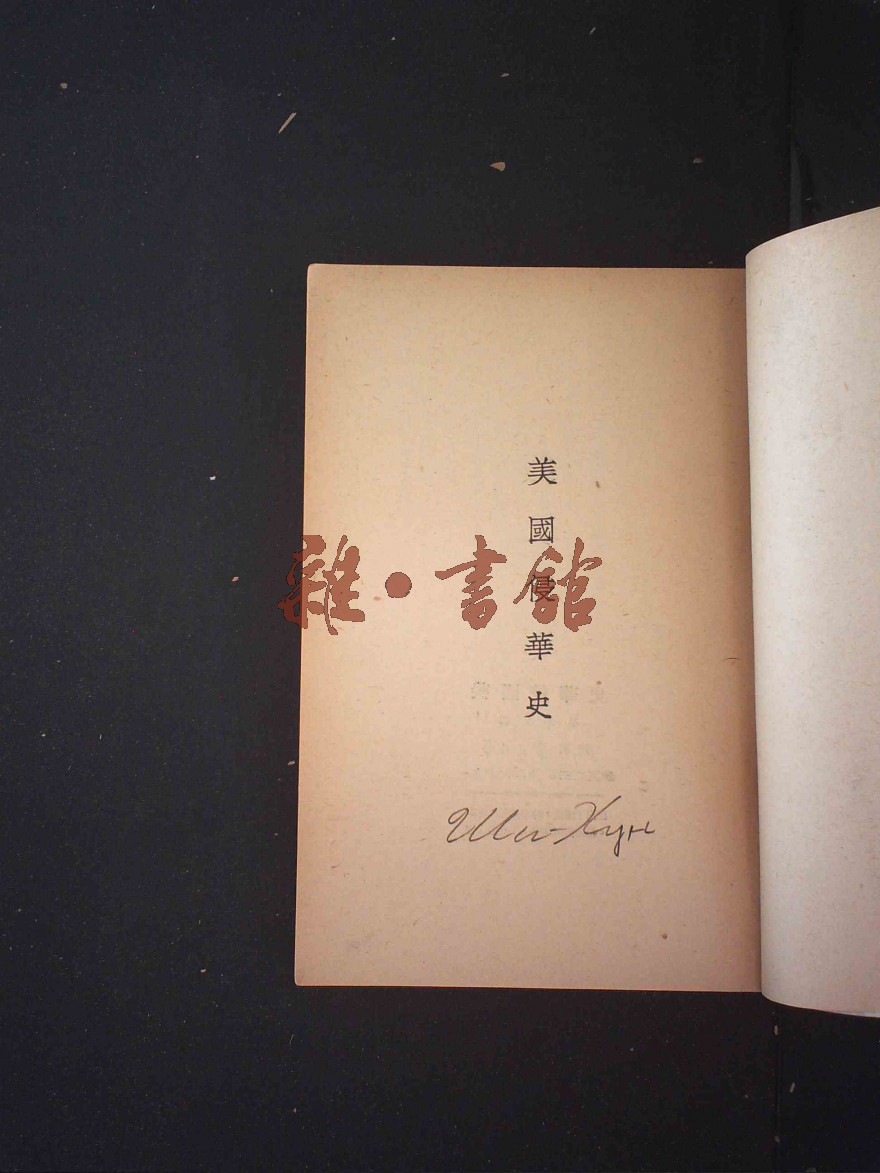 美國侵華史
雜·書館
Ши-Хун